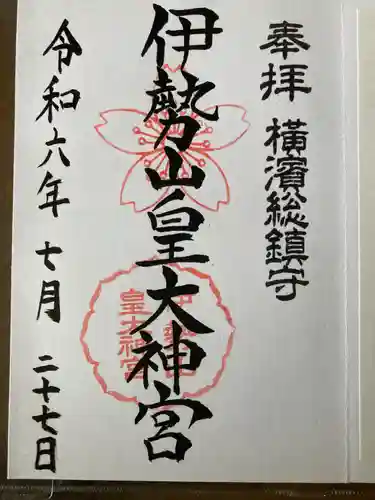 奉拝 横濱総鎮守
伊勢山皇大神宮
伊勢山
皇大神宮
令和六年 七月 二十七日